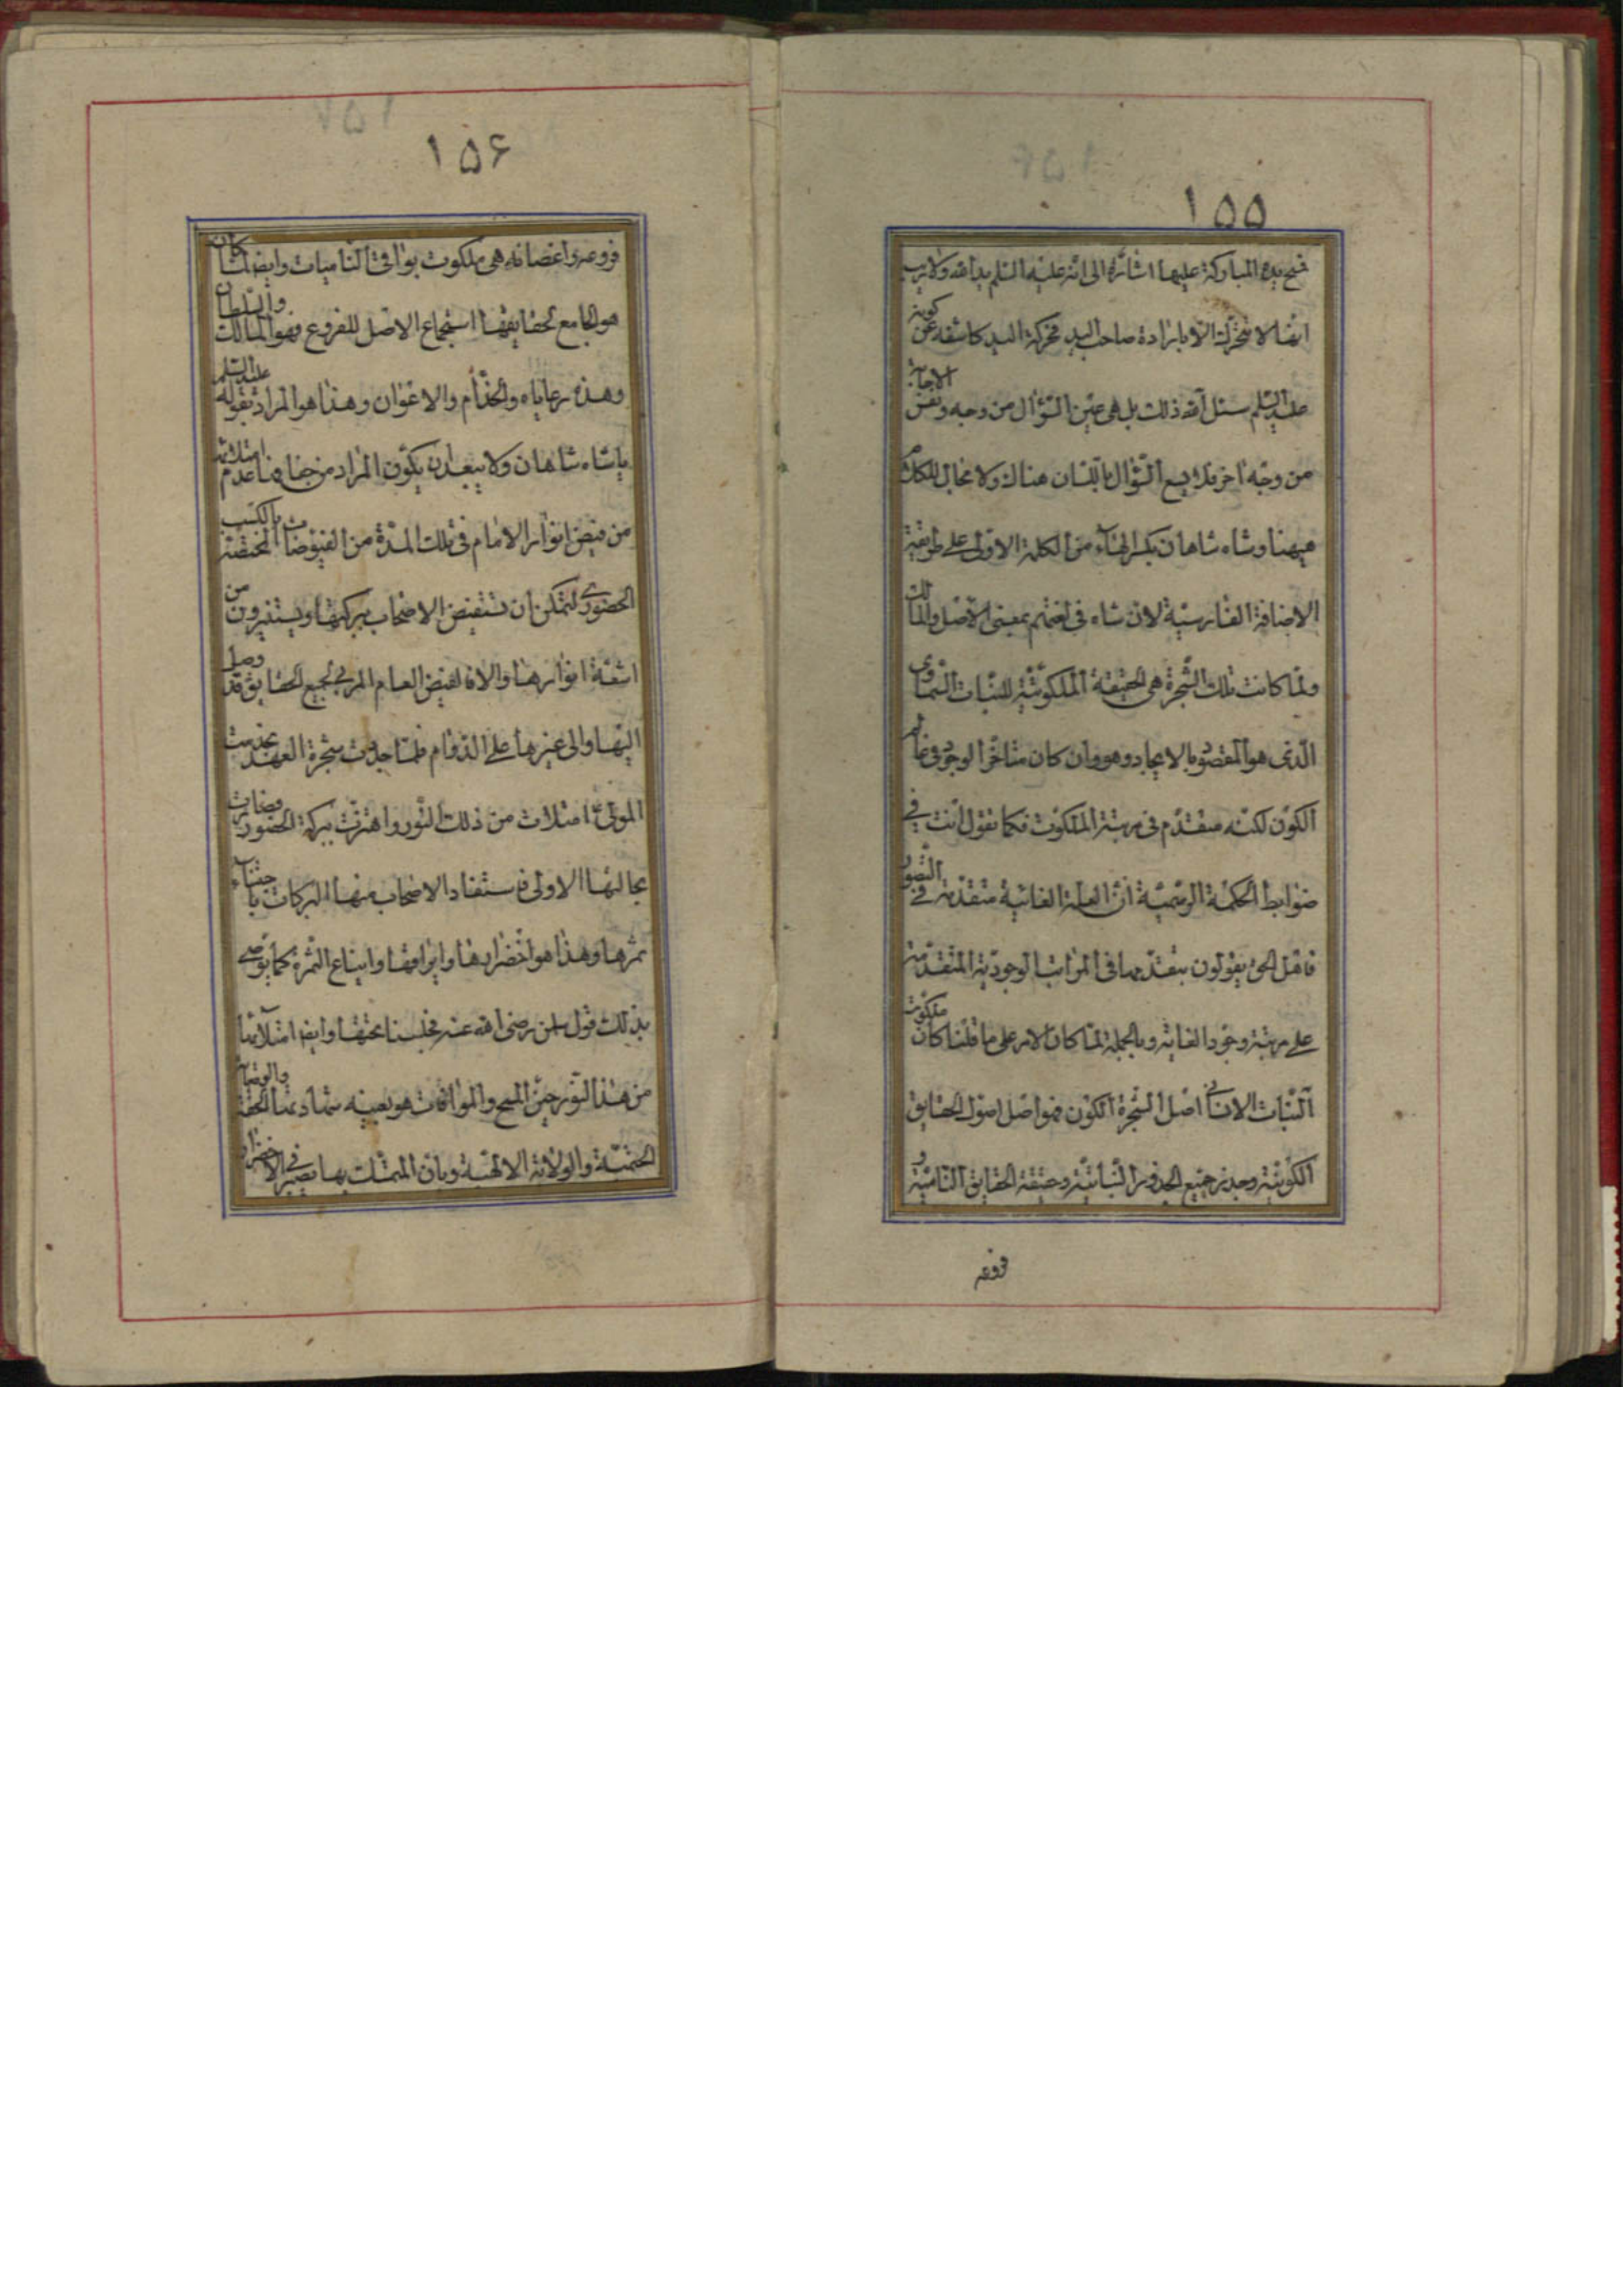 ۱۵۵
فمسح يده المباركة عليها اشارة الى انه عليه السلم يد الله ولا ريب
انها لا تتحرك الا بارادة صاحب اليد فحركة اليد كاشفة عن كونه
عليه السلم سئل الله ذلك بل هى عين السؤال من وجه ونفس الاجابة
من وجه اخر فلا يسع السؤال باللسان هناك ولا مجال للكلام
هيهنا وشاه شاهان بكسر الهاء من الكلمة الاولى على طريقة
الاضافة الفارسية لان شاه فى لغتهم بمعنى الاصل والمالك
ولما كانت تلك الشجرة هى الحقيقة الملكوتية للنبات السماوى
الذى هو المقصود بالايجاد وهو وان كان متاخر الوجود فى عالم
الكون لكنه متقدم فى مرتبة الملكوت فكما نقول انت فى
ضوابط الحكمة الرسمية ان العلة الغائية متقدمة فى التصور
فاهل الحق يقولون بتقدمها فى المراتب الوجودية المتقدمة
على مرتبة وجود الغاية وبالجملة لما كان الامر على ما قلنا كان ملكوت
النبات الانسانى اصل الشجرة الكون فهو اصل اصول الحقايق
الكونية وجذر جميع الجذور النباتية وحقيقة الحقايق النامية و
فروعه
۱۵۶
فروعه واغصانه هى ملكوت بواقى الناميات وايضا لما كان
هو الجامع لحقايقها استجماع الاصل للفروع فهو المالك والسلطان
وهذه رعاياه والخدام والاعوان وهذا هو المراد بقوله عليه السلم
يا شاه شاهان ولا يبعد ان يكون المراد من جفافها عدم امتلائه
من فيض انوار الامام فى تلك المدة من الفيوضات المختصة بالكسب
الحضورى ليتمكن ان تستفيض الاصحاب ببركتها ويستنيرون من
اشعة انوارها والا فالفيض العام المربى لجميع الحقايق قد وصل
اليها والى غيرها على الدوام فلما جددت شجرة العهد بخدمت
المولى امتلات من ذلك النور واهتزت ببركة الحضور وصارت
بحالتها الاولى فاستفاد الاصحاب منها البركات باجتناء
ثمرها وهذا هو اخضرارها وايراقها وايناع الثمرة كما يومى
بذلك قول سلمن رضى الله عنه فجلسنا تحتها وايضا امتلائها
من هذا النور حين المسح والموافات هو بعينه شهادتها لحقية والوصاية
الختمية والولاية الالهية وبان المتمسك بها يصير فى الاخضرار